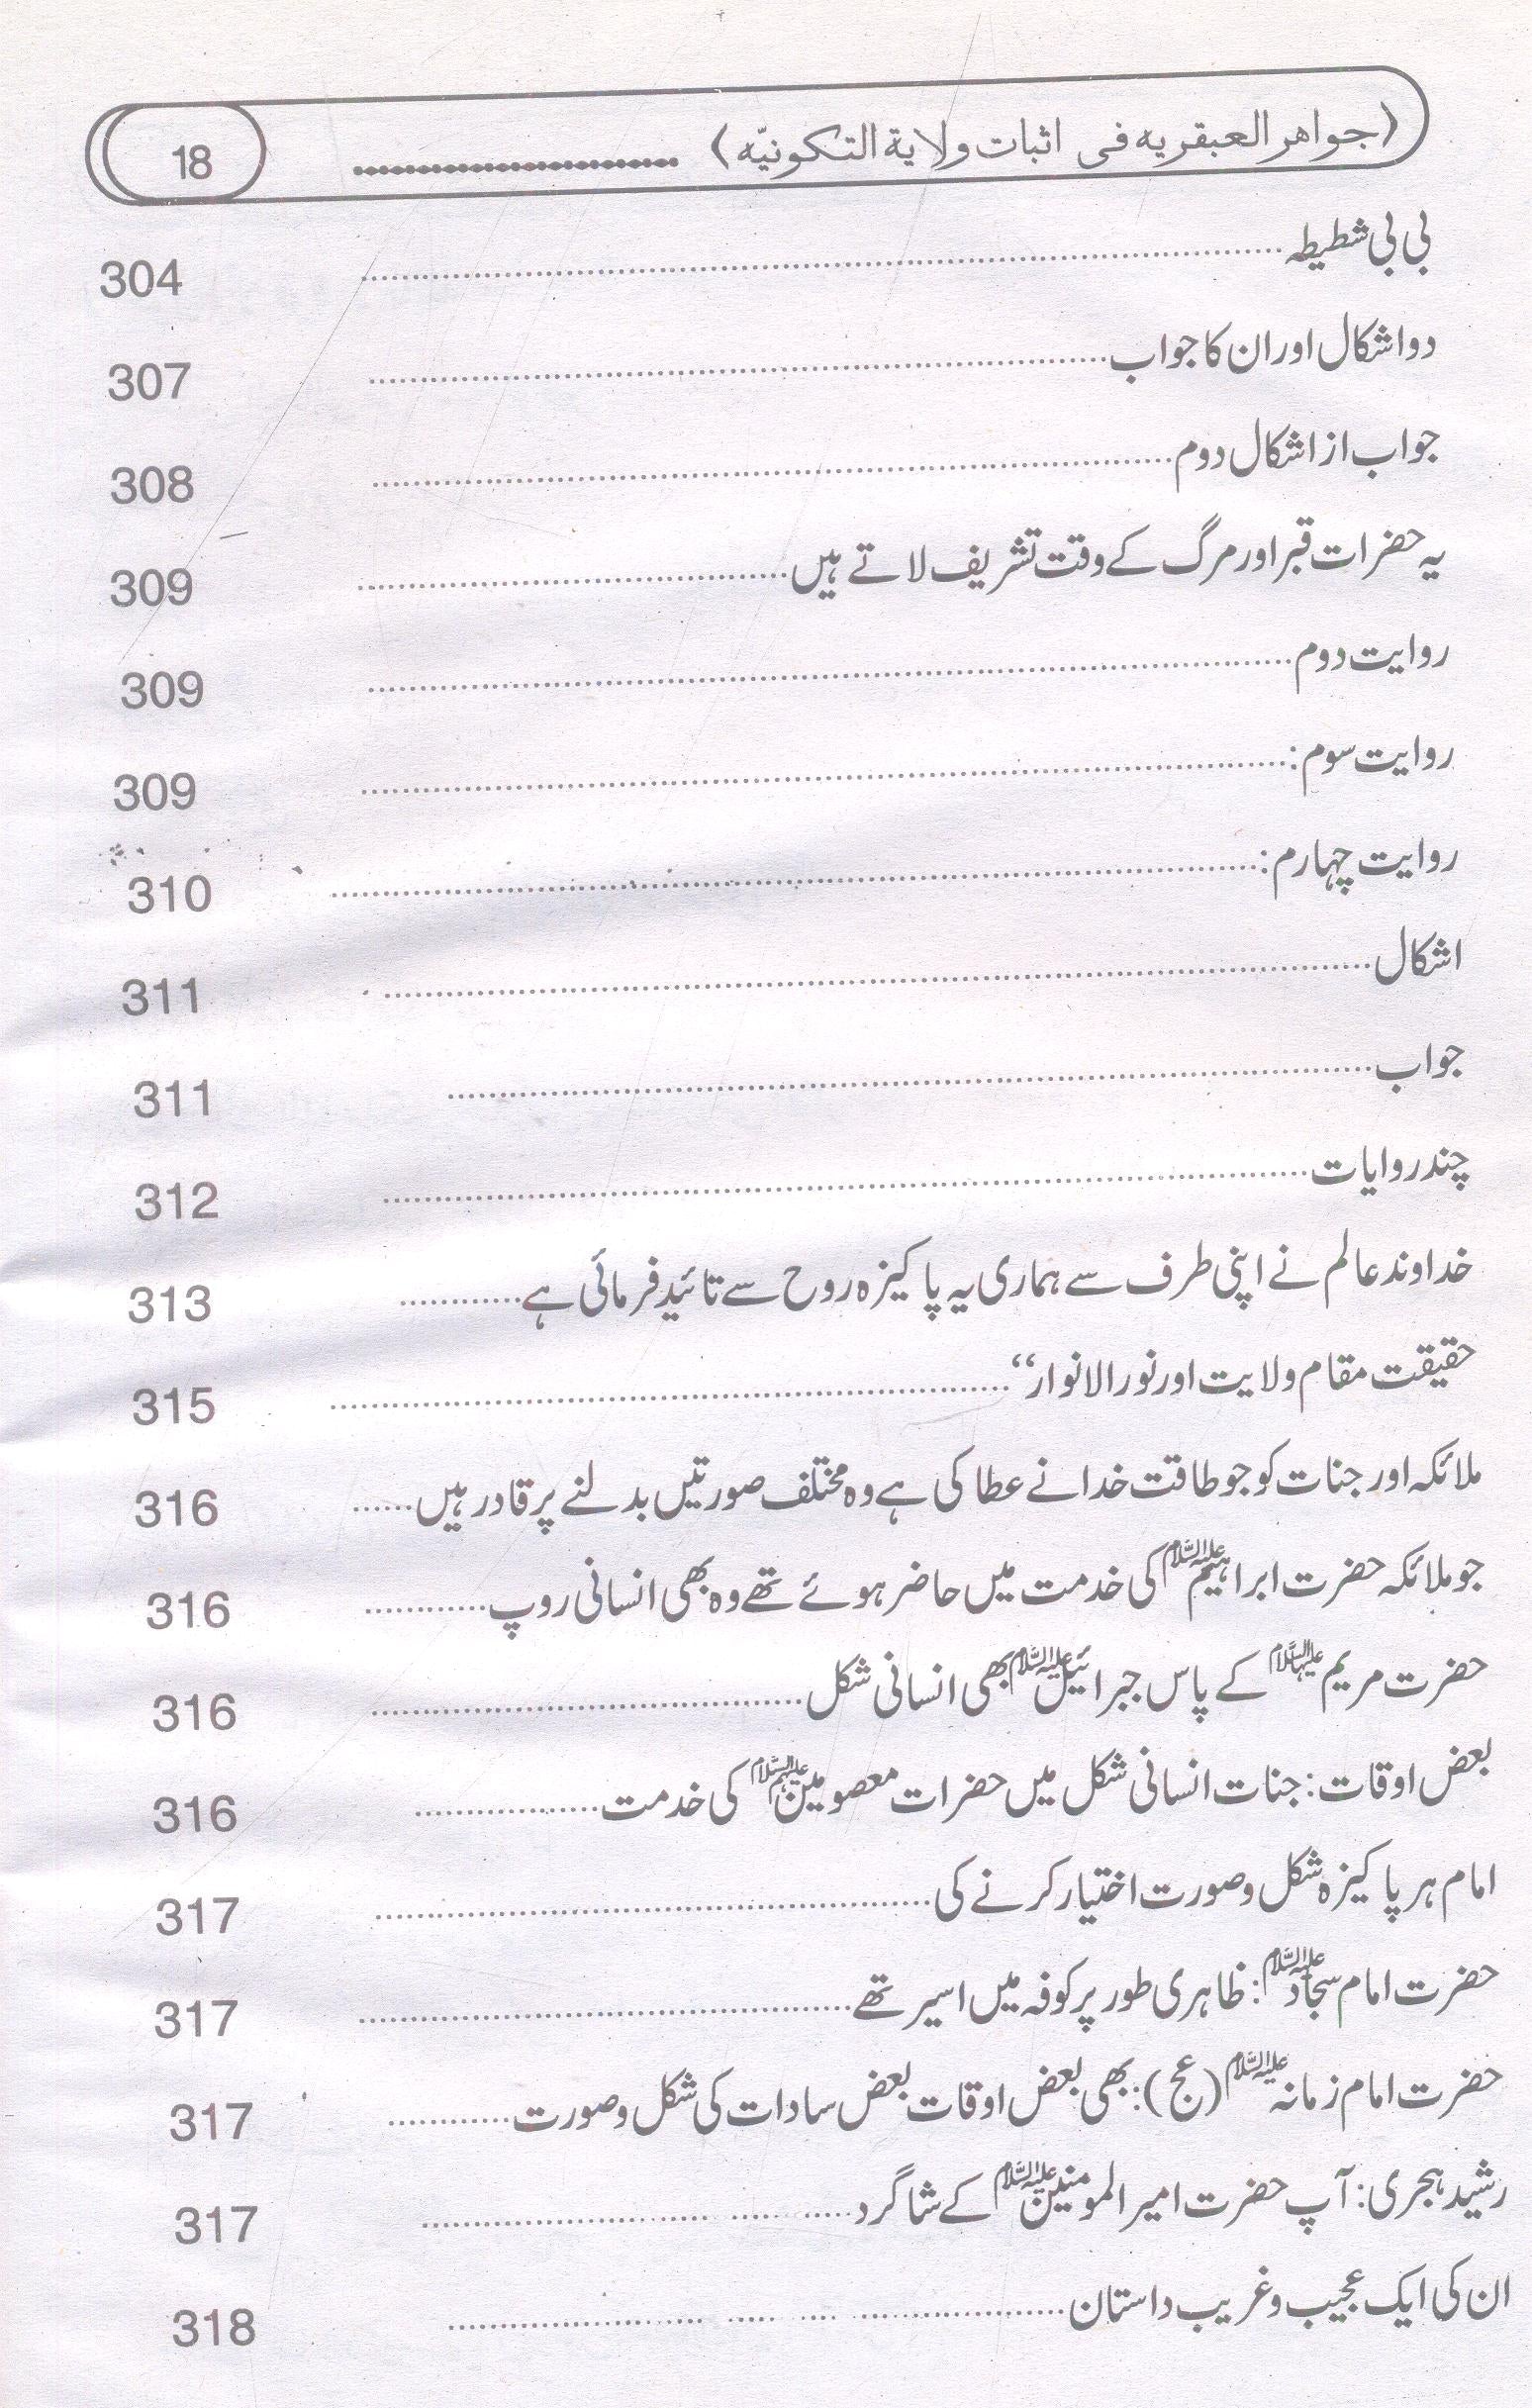 ﴿جواهر العبقريه فى اثبات ولاية التكونيّه﴾ ........................ 18
بی بی شطیطہ ........................ 304
دو اشکال اور ان کا جواب ........................ 307
جواب از اشکال دوم ........................ 308
یہ حضرات قبر اور مرگ کے وقت تشریف لاتے ہیں ........................ 309
روایت دوم ........................ 309
روایت سوم: ........................ 309
روایت چہارم: ........................ 310
اشکال ........................ 311
جواب ........................ 311
چند روایات ........................ 312
خداوند عالم نے اپنی طرف سے ہماری یہ پاکیزہ روح سے تائید فرمائی ہے ............ 313
حقیقت مقام ولایت اور نور الانوار“ ........................ 315
ملائکہ اور جنات کو جو طاقت خدا نے عطا کی ہے وہ مختلف صورتیں بدلنے پر قادر ہیں ...... 316
جو ملائکہ حضرت ابراہیم علیہ السلام کی خدمت میں حاضر ہوئے تھے وہ بھی انسانی روپ ............ 316
حضرت مریم علیہا السلام کے پاس جبرائیل علیہ السلام بھی انسانی شکل ........................ 316
بعض اوقات: جنات انسانی شکل میں حضرات معصومین علیہم السلام کی خدمت ................ 316
امام ہر پاکیزہ شکل و صورت اختیار کرنے کی ........................ 317
حضرت امام سجاد علیہ السلام: ظاہری طور پر کوفہ میں اسیر تھے ........................ 317
حضرت امام زمانہ علیہ السلام (عج): بھی بعض اوقات بعض سادات کی شکل و صورت ............ 317
رشید ہجری: آپ حضرت امیر المومنین علیہ السلام کے شاگرد ........................ 317
ان کی ایک عجیب و غریب داستان ........................ 318